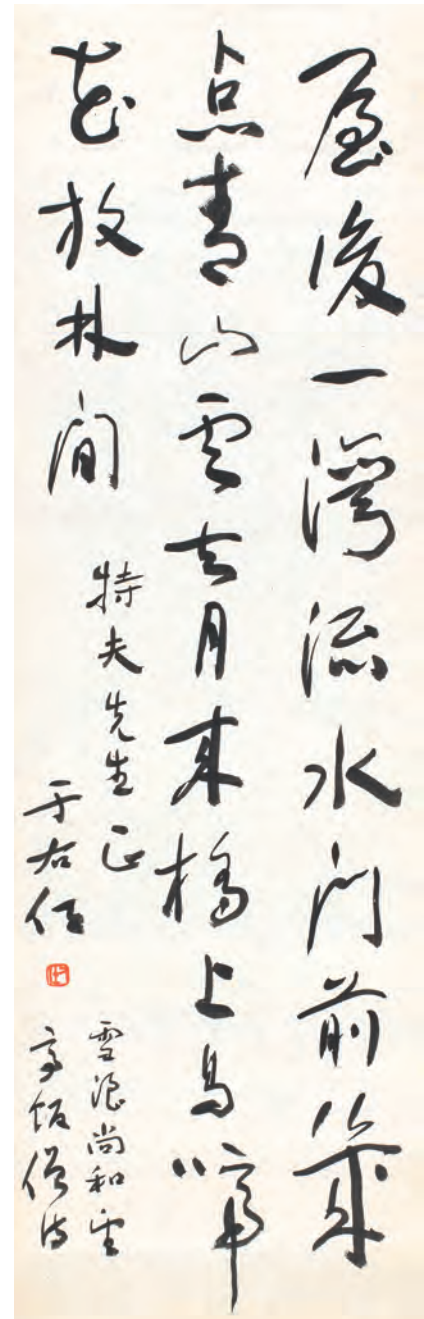 屋後一灣流水門前幾
点青山雲去月来橋上鳥啼
花放林間
特夫先生正
于右任
雪浪尚和雲
飯僧詩